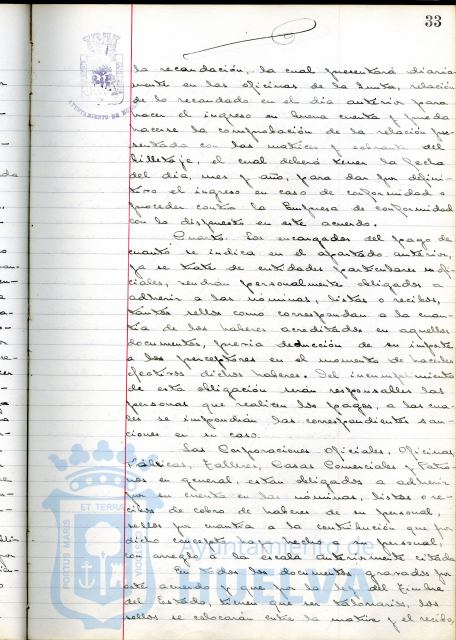 33
la recaudación, la cual presentará diaria-
mente en las oficinas de la Junta, relación
de lo recaudado en el día anterior para
hacer el ingreso en buena cuenta y pueda
hacerse la comprobación de la relación pre-
sentada con las matrices y sobrante del
billetaje, el cual deberá tener la fecha
del día, mes y año, para dar por difini-
tivo el ingreso en caso de conformidad o
proceder contra la Empresa de conformidad
con lo dispuesto en este acuerdo.
Cuarto. Los encargados del pago de
cuanto se indica en el apartado anterior,
ya se trate de entidades particulares u ofi-
ciales, vendrán personalmente obligados a
adherir a las nóminas, listas o recibos,
tantos sellos como correspondan a la cuan-
tía de los haberes acreditados en aquellos
documentos, previa deducción de su importe
a los perceptores en el momento de hacerles
efectivos dichos haberes. Del incumplimiento
de esta obligación serán responsables las
personas que realicen los pagos, a las cua-
les se impondrán las correspondientes san-
ciones en su caso.
Las Corporaciones Oficiales, Oficinas
Fábricas, Talleres, Casas Comerciales y Patro-
nos en general, están obligados a adherir
por su cuenta en las nóminas, listas o re-
cibos de cobro de haberes de su personal,
sellos por cuantía a la contribución que por
dicho concepto haya hecho su personal,
con arreglo a la escala anteriormente citada
En todos los documentos gravados por
este acuerdo y que por la Ley del Timbre
del Estado, tienen que ser talonarios, los
sellos se colocarán entre la matriz y el recibo,
PORTUS MARIS
ET TERRAE
Ayuntamiento de
HUELVA